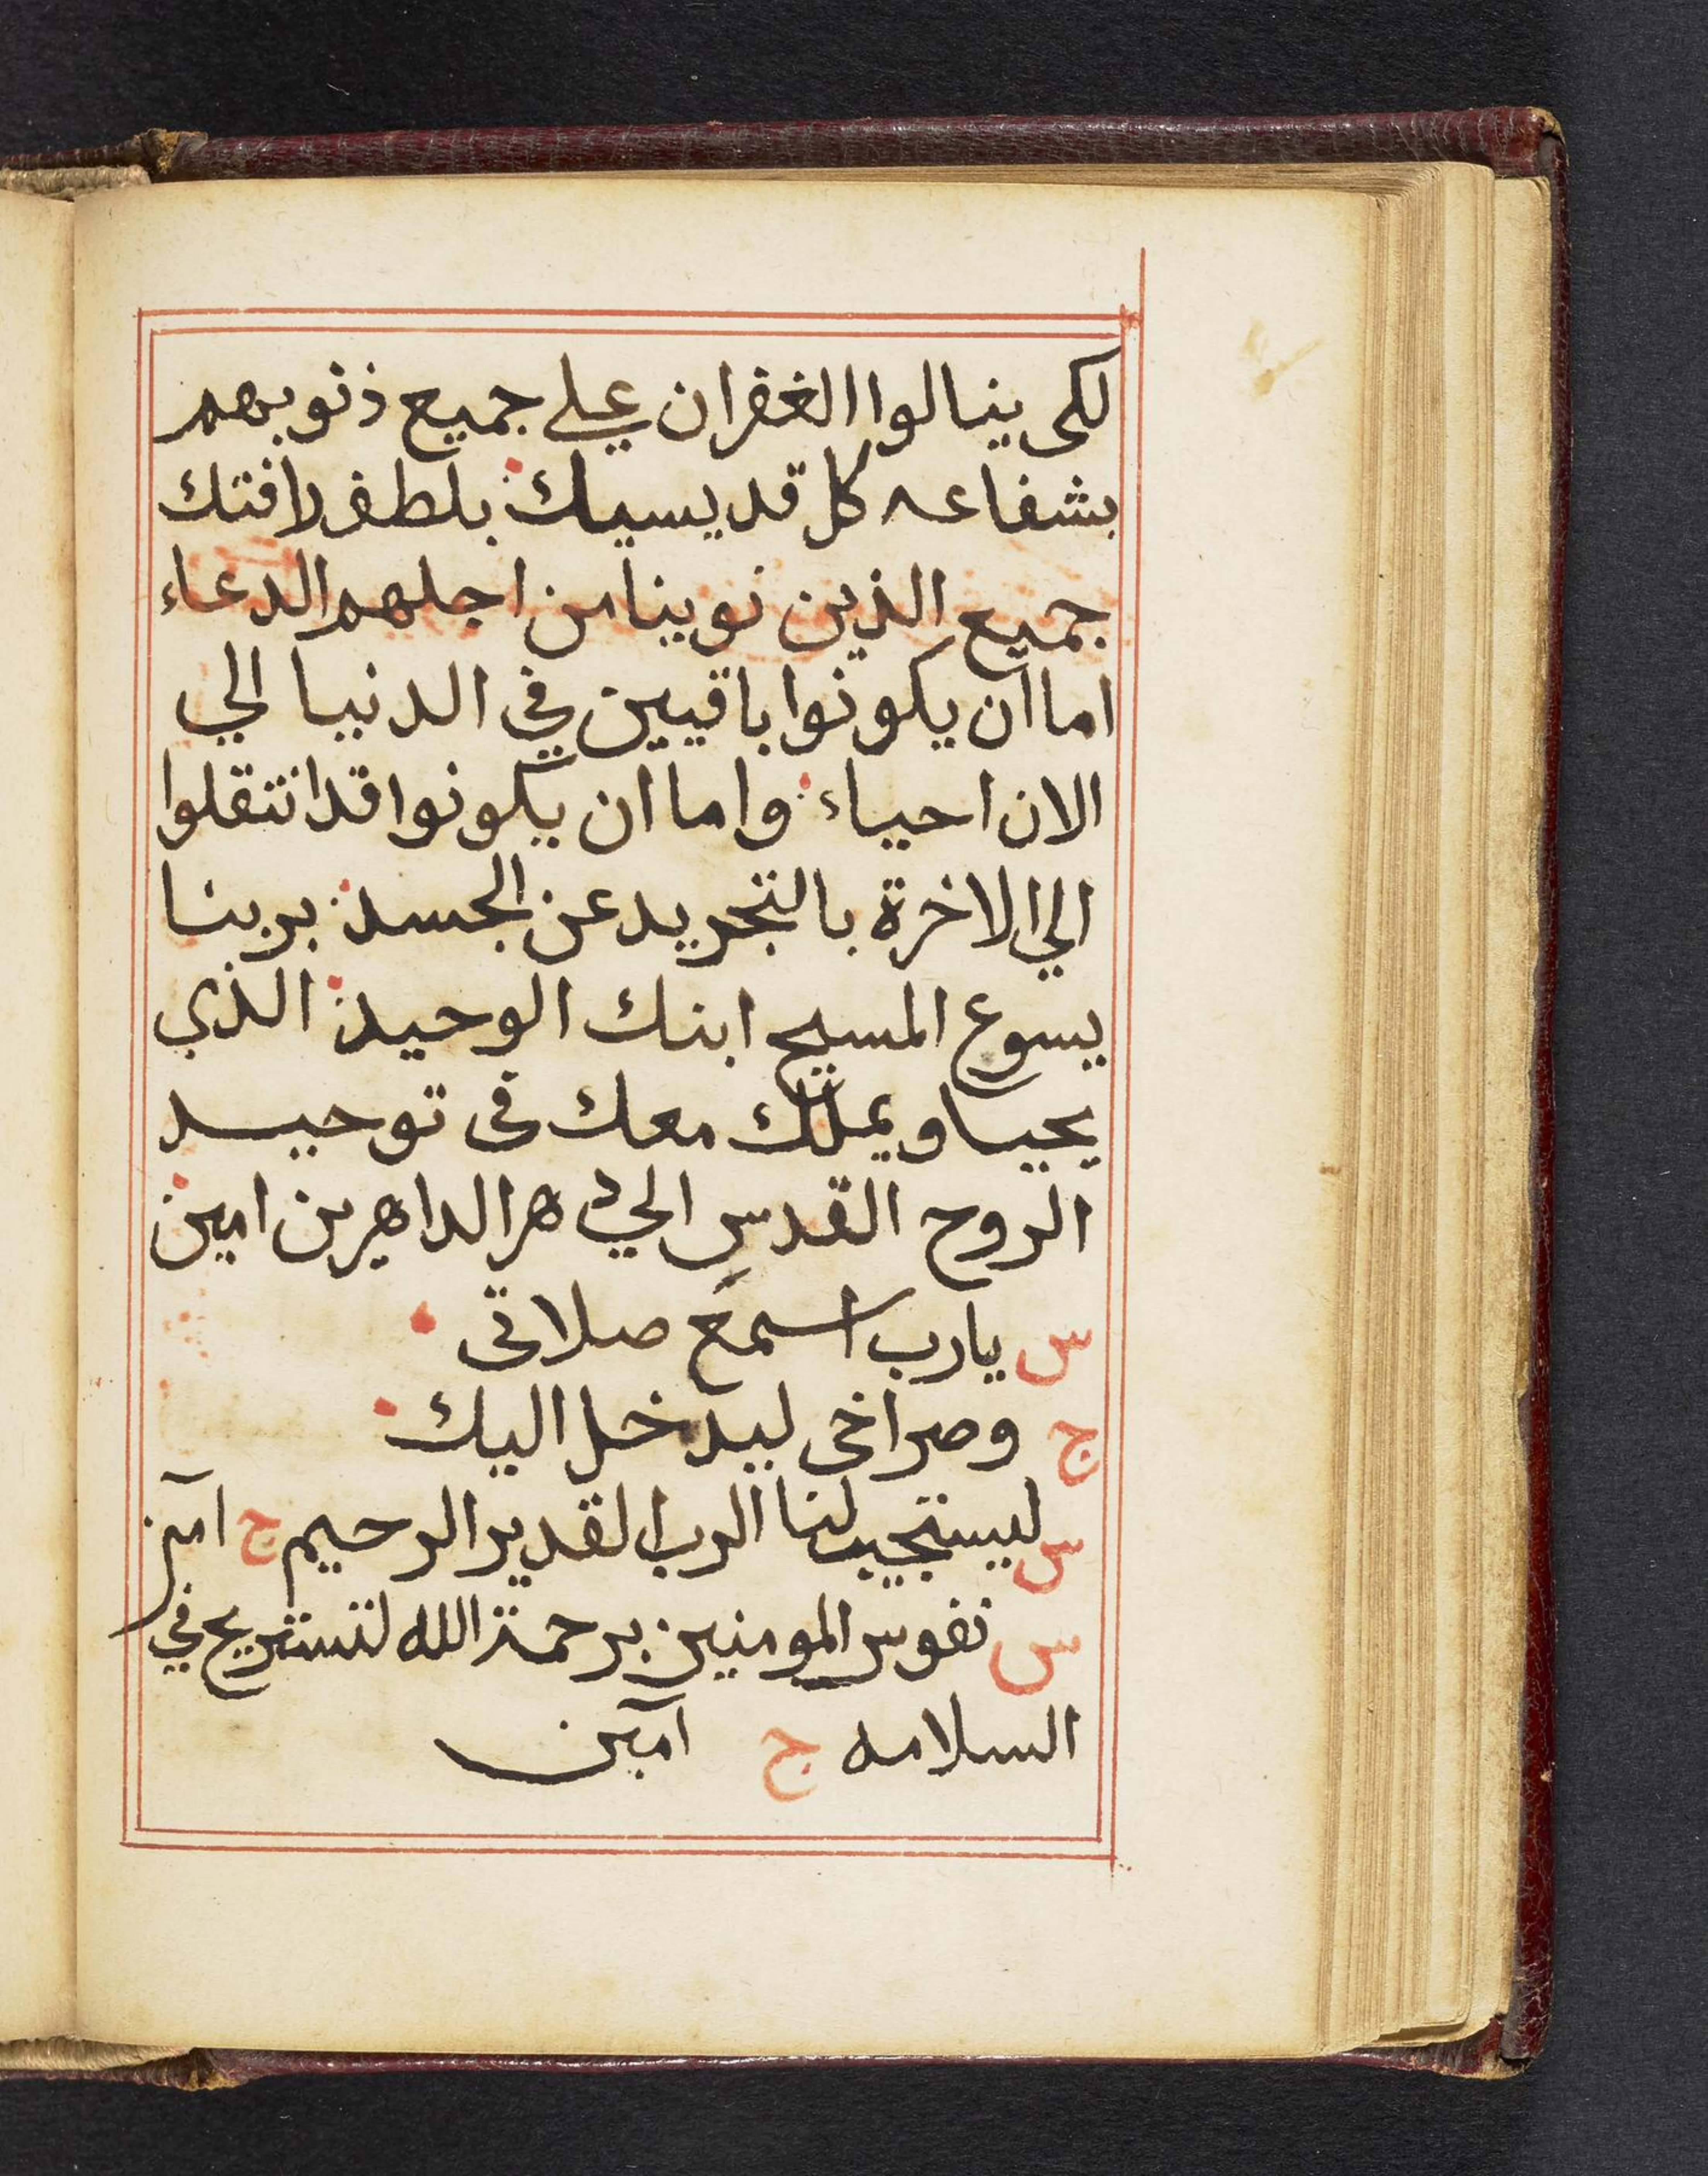 لكى ينالوا الغفران علي جميع ذنوبهم
بشفاعه كل قديسيك؛ بلطف رافتك
جميع الذين نوينا من اجلهم الدعاء
اما ان يكونوا باقيين في الدنيا الي
الان احياء؛ واما ان يكونوا قد انتقلوا
الي الاخرة بالتجريد عن الجسد؛ بربنا
يسوع المسيح ابنك الوحيد؛ الذي
يحيا ويملك معك فى توحيد
الروح القدس الي دهر الداهرين امين
س يارب اسمع صلاتى
ج وصراخى ليدخل اليك
س ليستجيب لنا الرب القدير الرحيم ج آمين
س نفوس المومنين برحمة الله لتستريح في
السلامه ج آمين